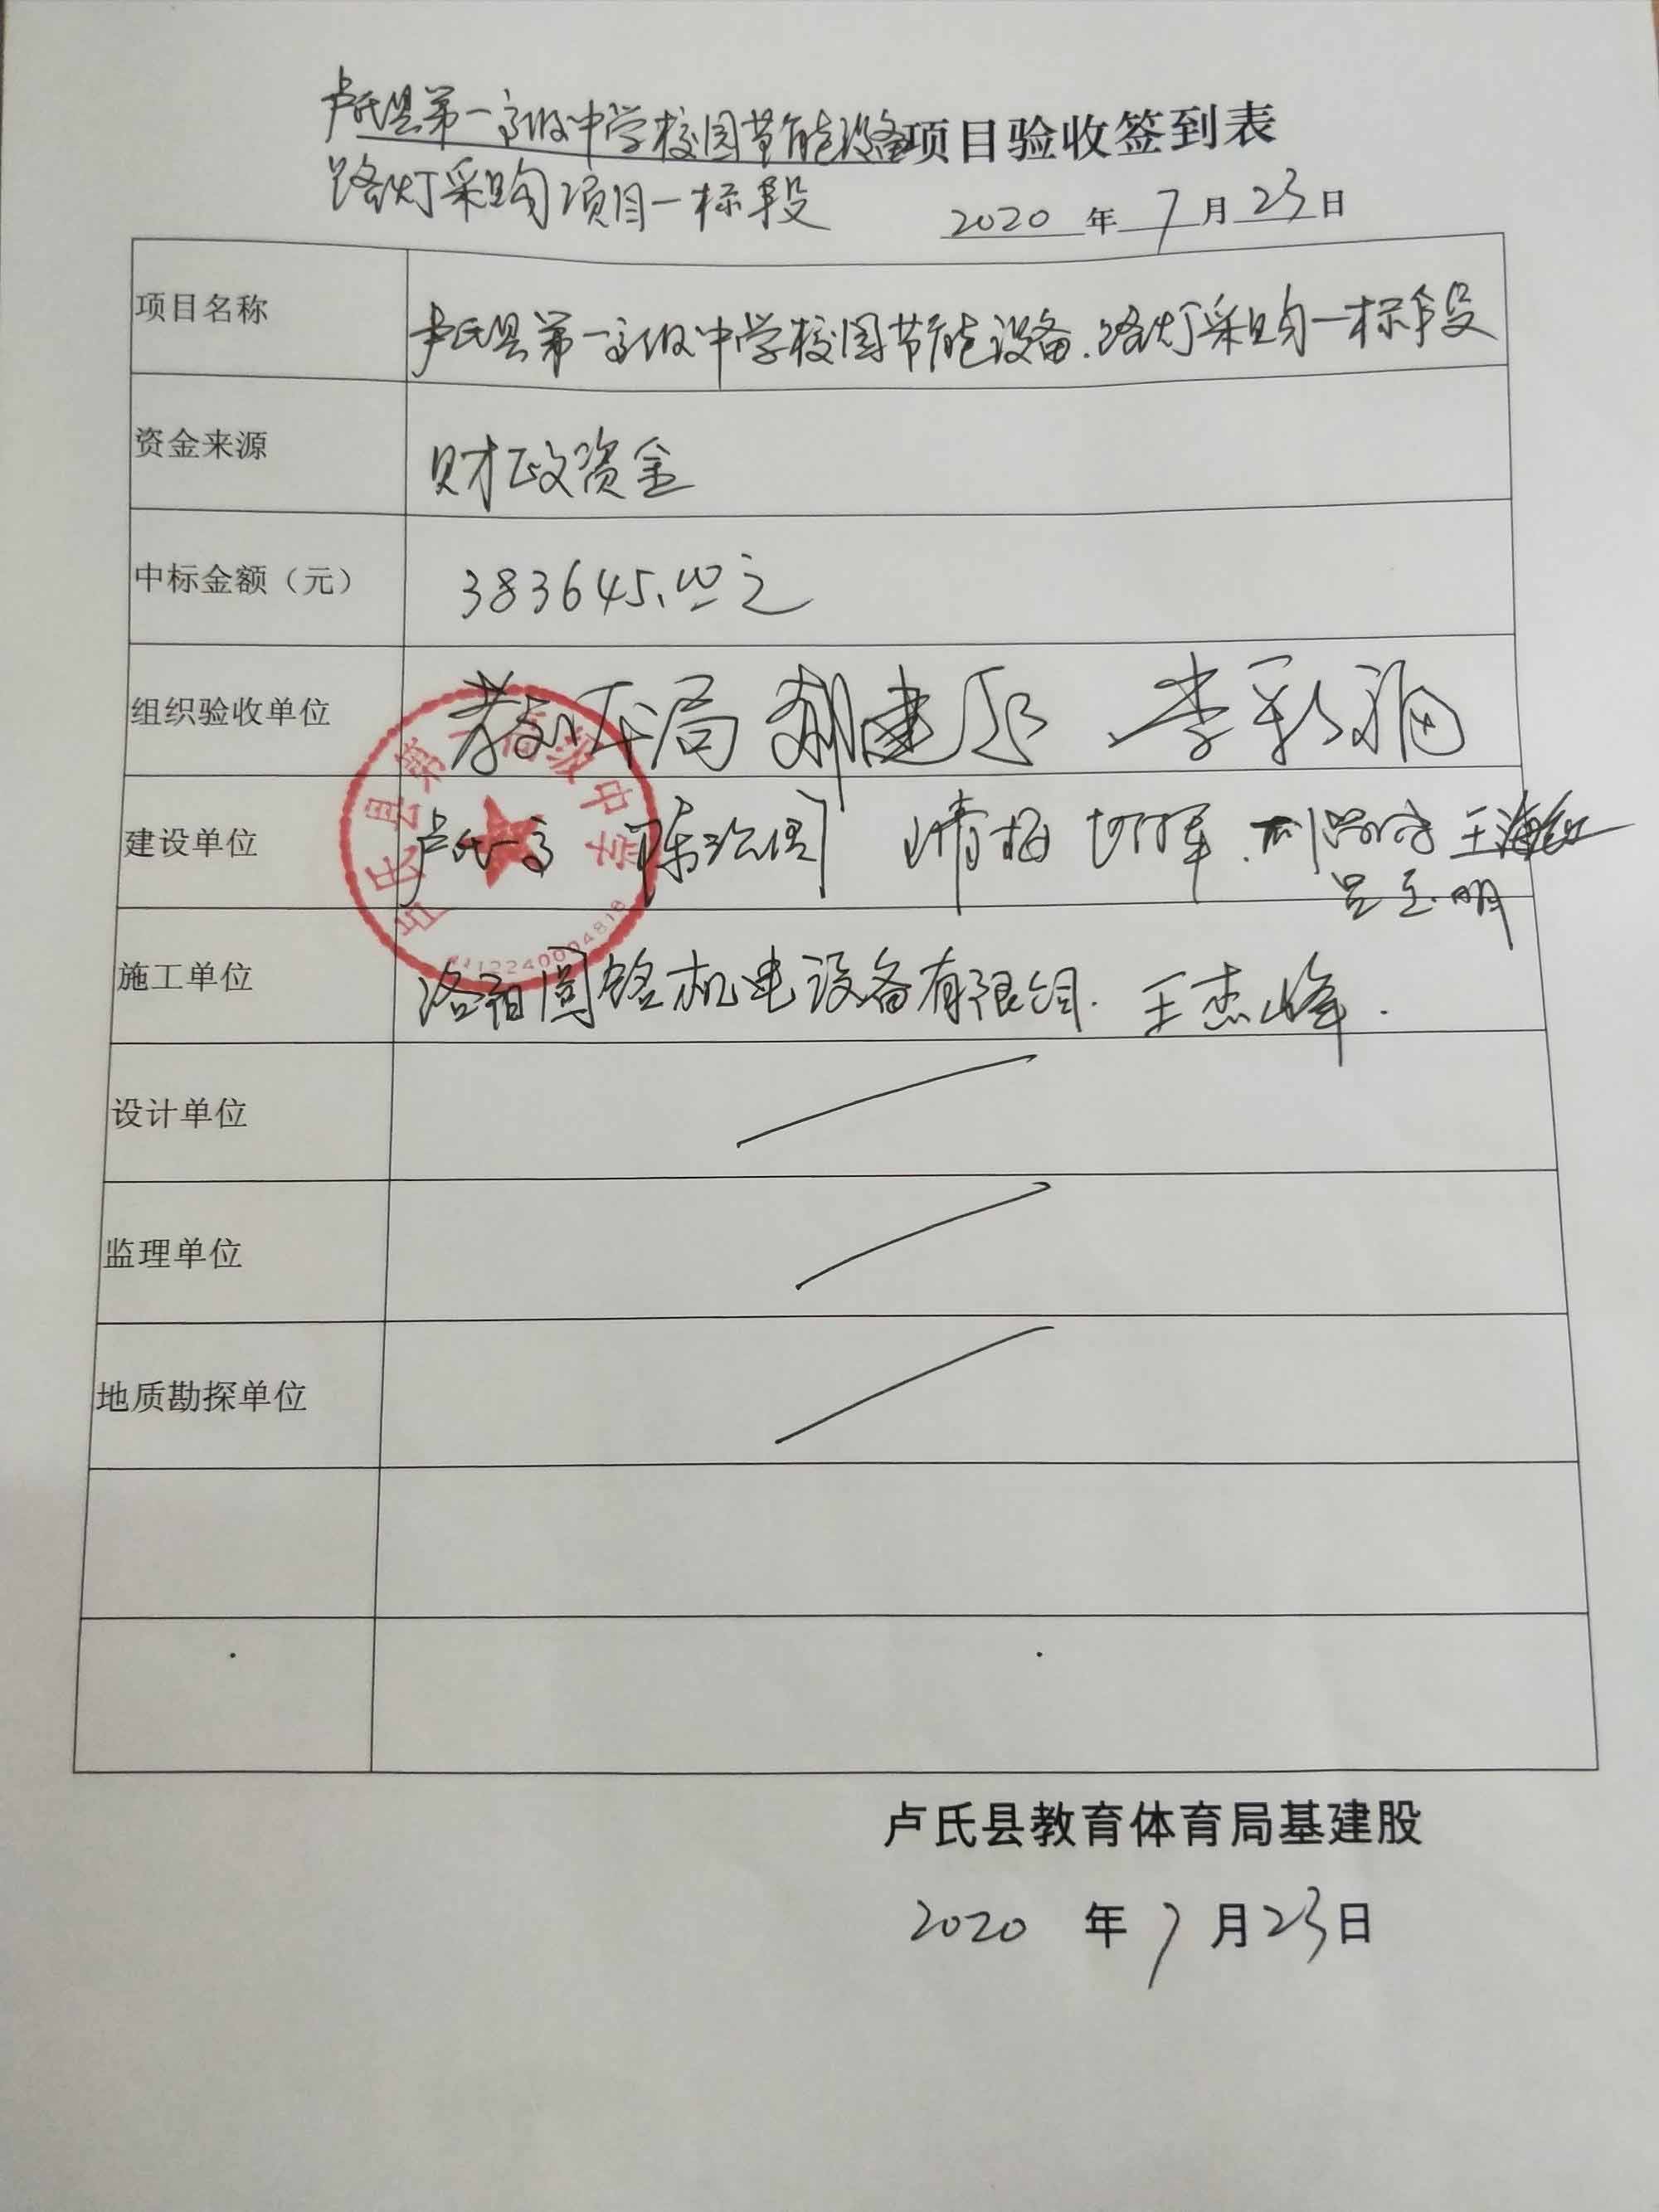 卢氏县第一高级中学校园节能设备项目验收签到表
路灯采购项目一标段
2020年7月23日
项目名称
卢氏县第一高级中学校园节能设备.路灯采购一标段
资金来源
财政资金
中标金额（元）
383645.00元
组织验收单位
教体局 李彩
建设单位
卢氏一高 王海红
吕玉明
施工单位
洛阳 机电设备有限公司. 王杰峰.
卢氏县第一高级中学
4112240004818
设计单位
监理单位
地质勘探单位
卢氏县教育体育局基建股
2020年7月23日